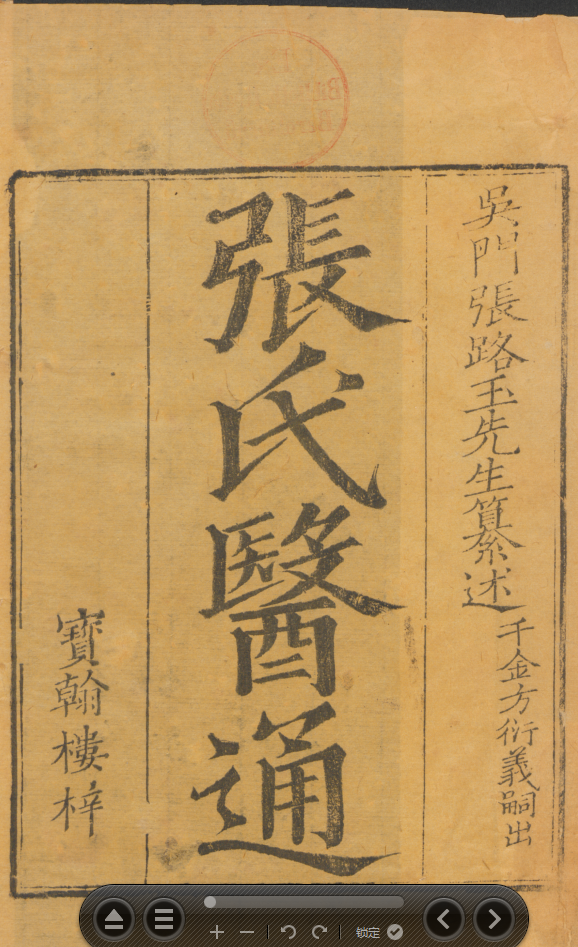 吳門張路玉先生纂述
千金方衍義嗣出
張氏醫通
寶翰樓梓
锁定